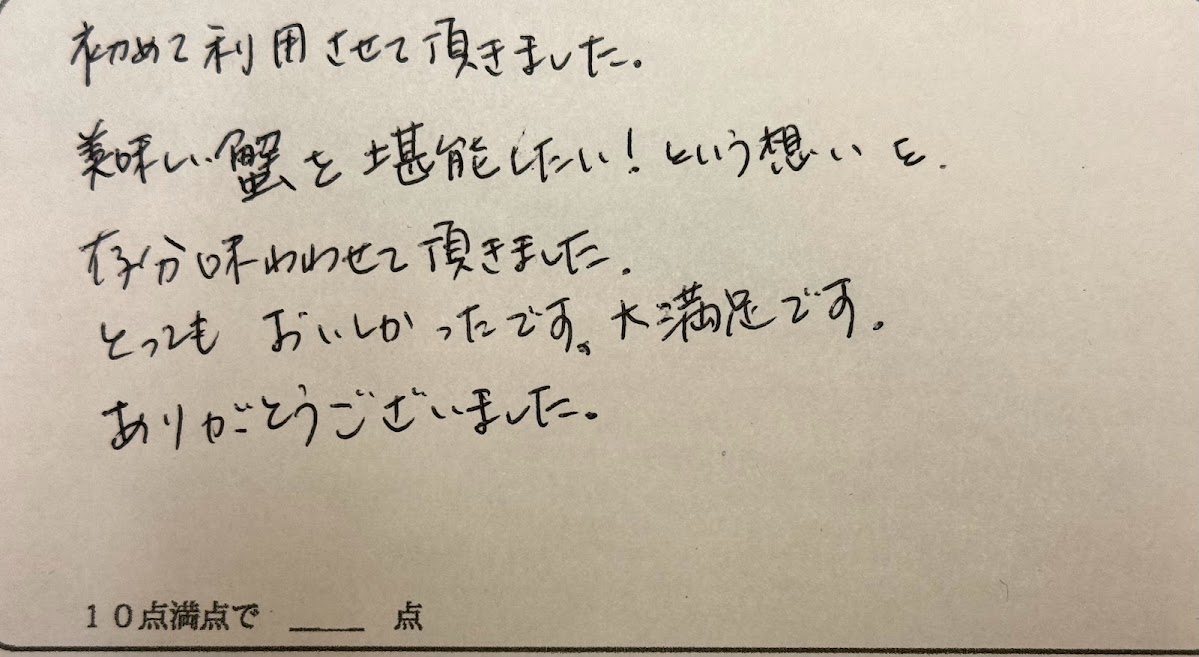 初めて利用させて頂きました。
美味しい蟹を堪能したい!という想いを、
存分味わわせて頂きました。
とってもおいしかったです。大満足です。
ありがとうございました。
10点満点で ____ 点